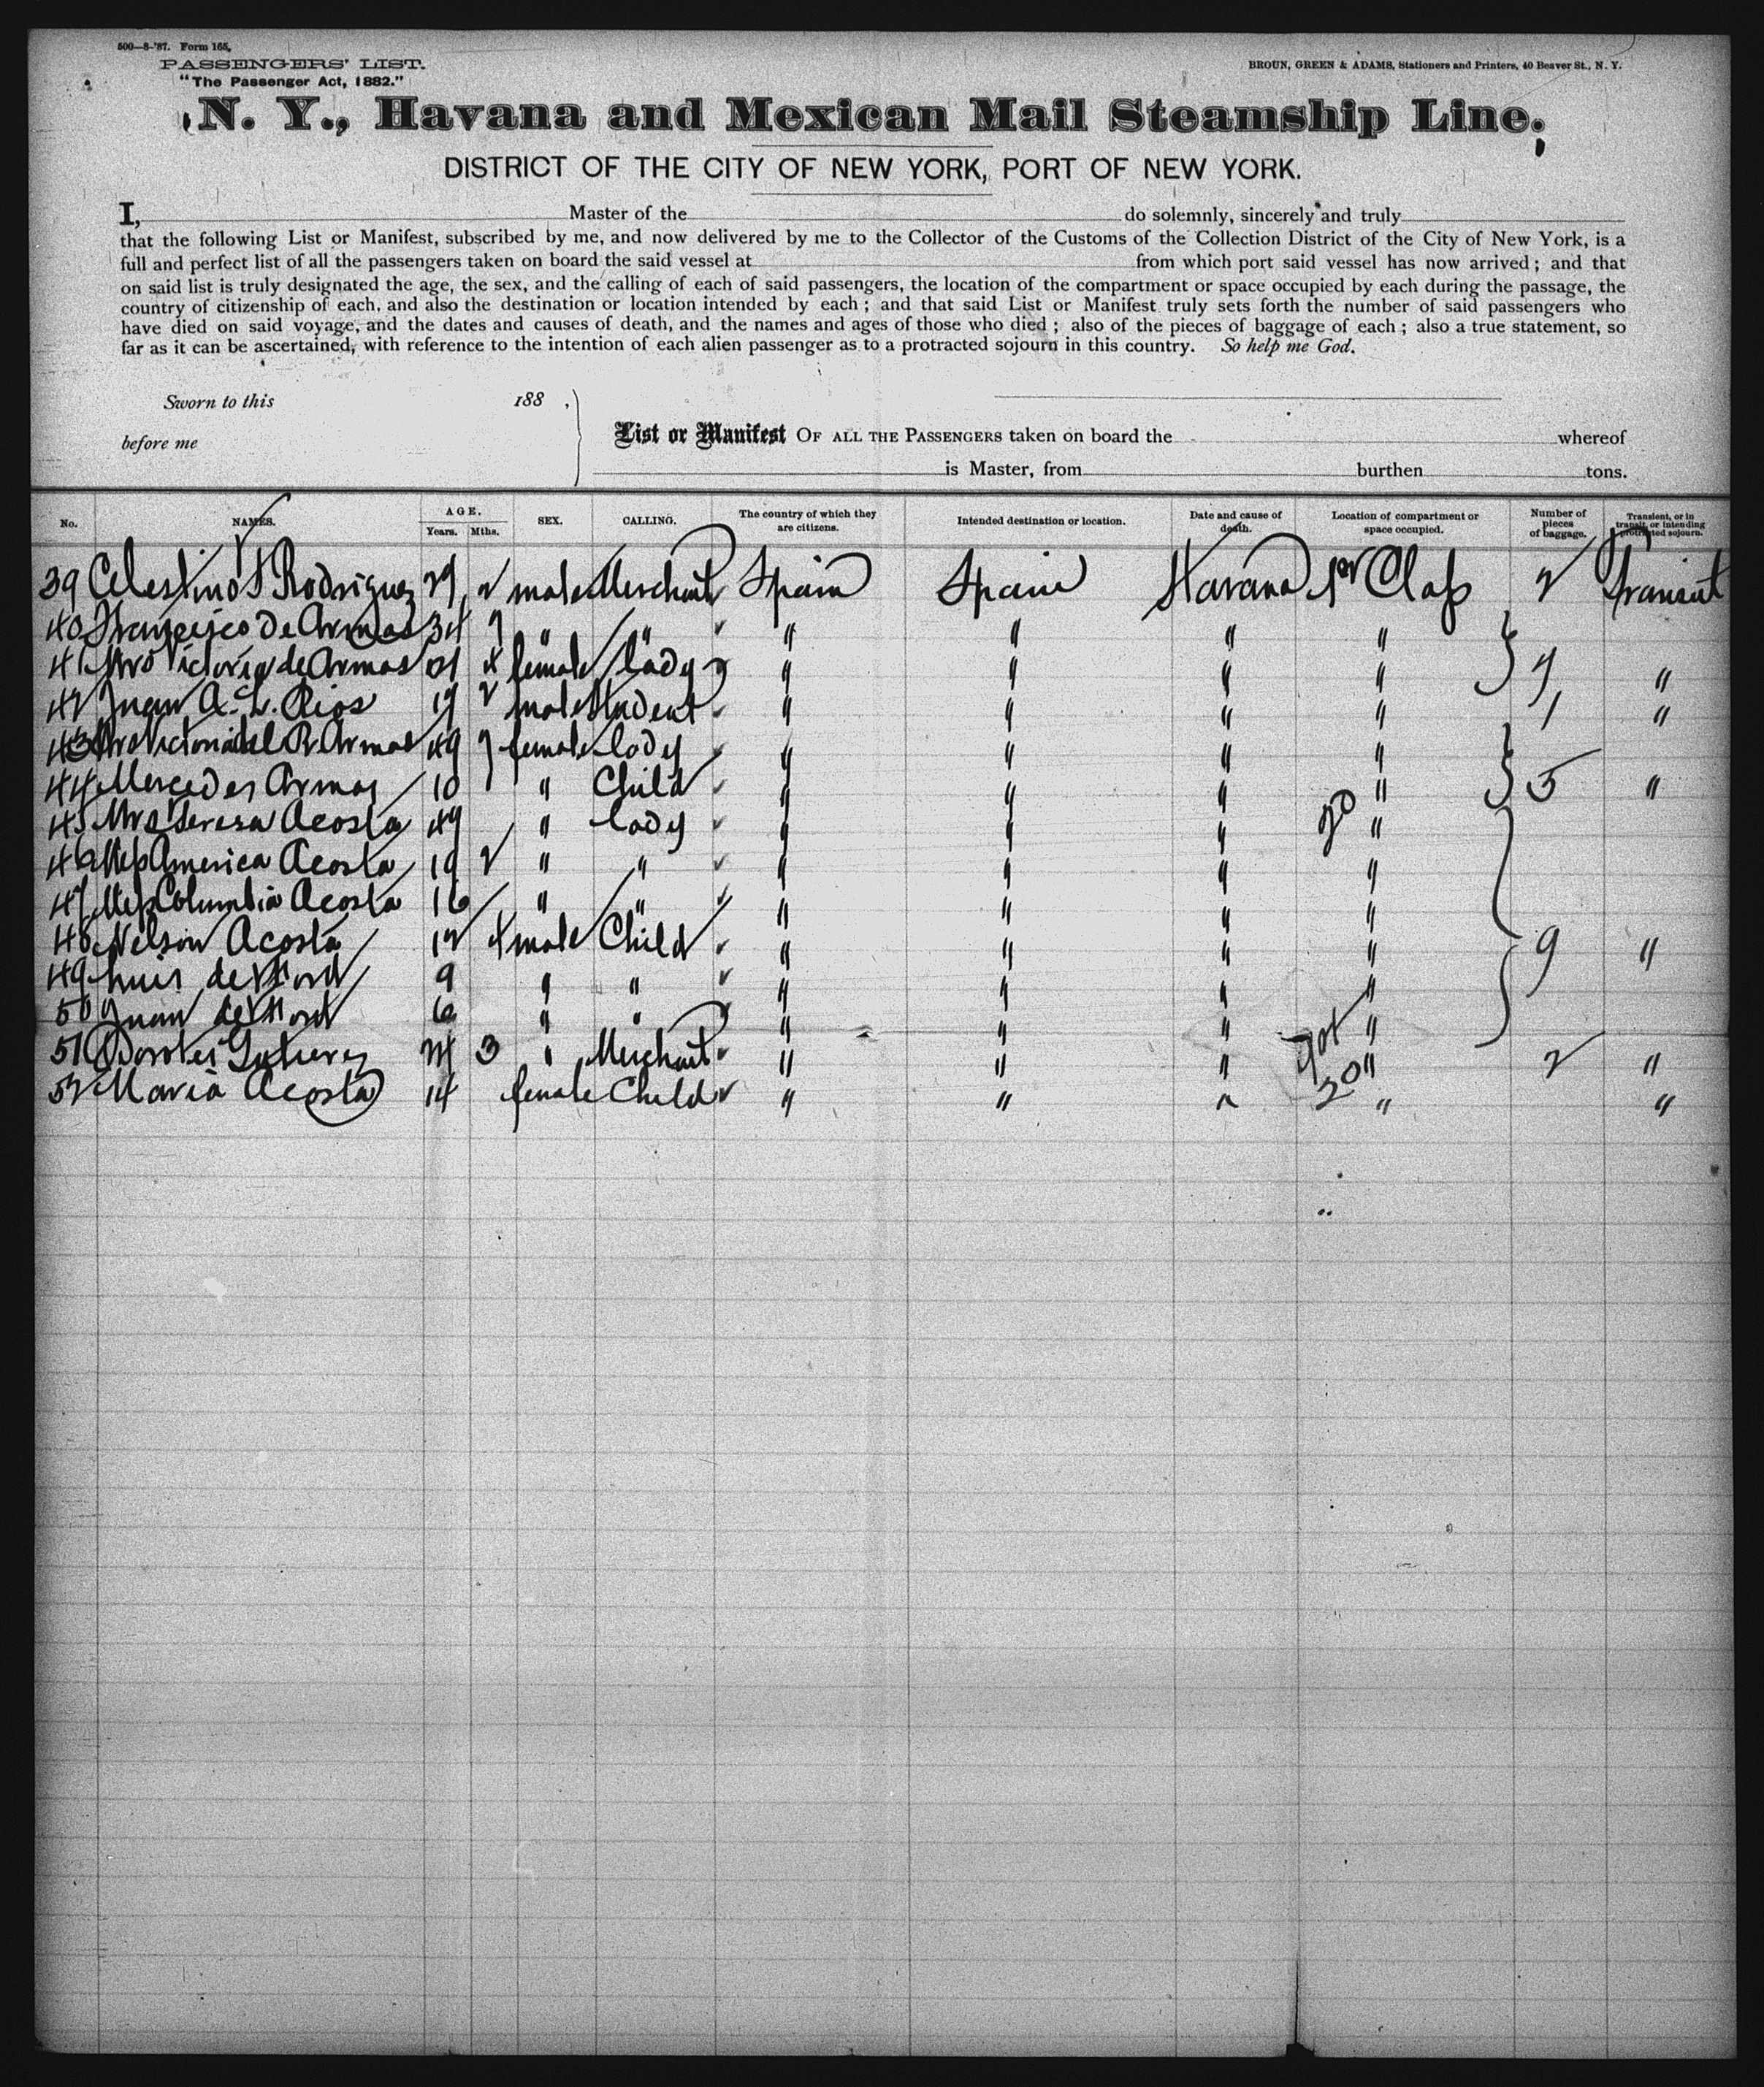 500—8-'87. Form 165.
PASSENGERS' LIST.
"The Passenger Act, 1882."
BROUN, GREEN & ADAMS, Stationers and Printers, 40 Beaver St., N. Y.
N. Y., Havana and Mexican Mail Steamship Line,
DISTRICT OF THE CITY OF NEW YORK, PORT OF NEW YORK.
I, Master of the do solemnly, sincerely and truly
that the following List or Manifest, subscribed by me, and now delivered by me to the Collector of the Customs of the Collection District of the City of New York, is a
full and perfect list of all the passengers taken on board the said vessel at from which port said vessel has now arrived; and that
on said list is truly designated the age, the sex, and the calling of each of said passengers, the location of the compartment or space occupied by each during the passage, the
country of citizenship of each, and also the destination or location intended by each; and that said List or Manifest truly sets forth the number of said passengers who
have died on said voyage, and the dates and causes of death, and the names and ages of those who died; also of the pieces of baggage of each; also a true statement, so
far as it can be ascertained, with reference to the intention of each alien passenger as to a protracted sojourn in this country. So help me God.
Sworn to this 188 ,
before me
List or Manifest OF ALL THE PASSENGERS taken on board the whereof
is Master, from burthen tons.
No. NAMES. AGE. Years. Mths. SEX. CALLING. The country of which they are citizens. Intended destination or location. Date and cause of death. Location of compartment or space occupied. Number of pieces of baggage. Transient, or in transit, or intending protracted sojourn.
39 Celestino Rodriguez 29 2 male Merchant Spain Spain Havana 1st Class 2 Transient
40 Francisco De Armas 34 " " " " " "
41 Mrs Victoria de Armas 4 female lady " " " "  "
42 Juan A. L. Rios 19 2 male Student " " " " 1 "
43 Mrs Victoria del R. Armas 49 female lady " " " "
44 Mercedes Armas 10 " Child " " " " 5 "
45 Mrs Teresa Acosta 49 " lady " " " "
46 Miss America Acosta 19 2 " " " " " "
47 Miss Columbia Acosta 16 " " " " " "
48 Nelson Acosta 12 4 male Child " " " " 9 "
49 Luis de 9 " " " " " "
50 Juan de 6 " " " " " "
51 Gutierrez 24 3 " Merchant " " " " 2 "
52 Maria Acosta 14 female Child " " " " "